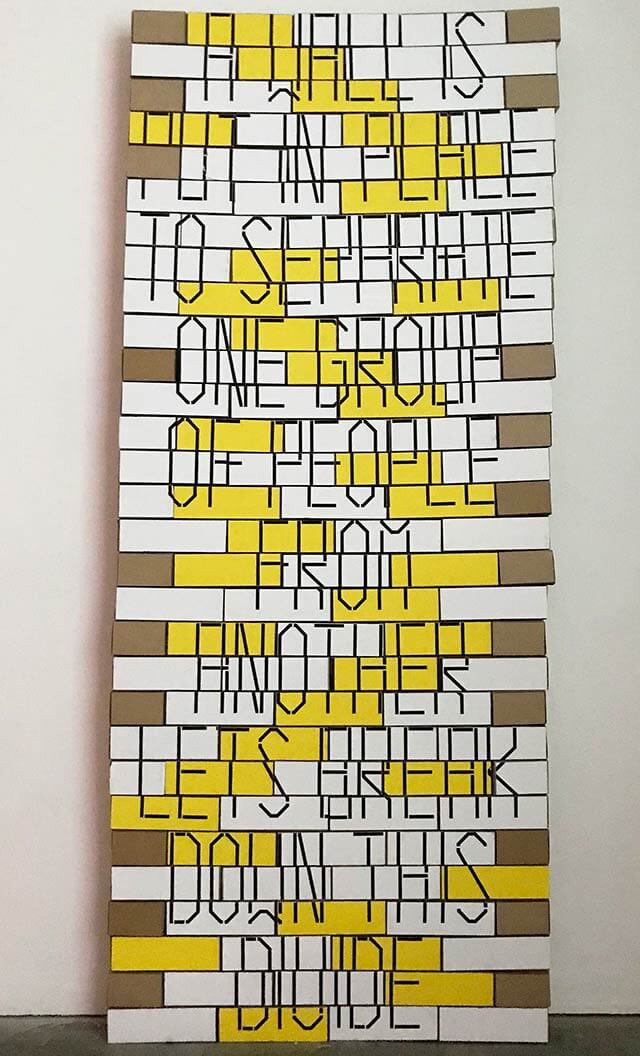 A WALL IS
PUT IN PLACE
TO SEPARATE
ONE GROUP
OF PEOPLE
FROM
ANOTHER
LETS BREAK
DOWN THIS
DIVIDE